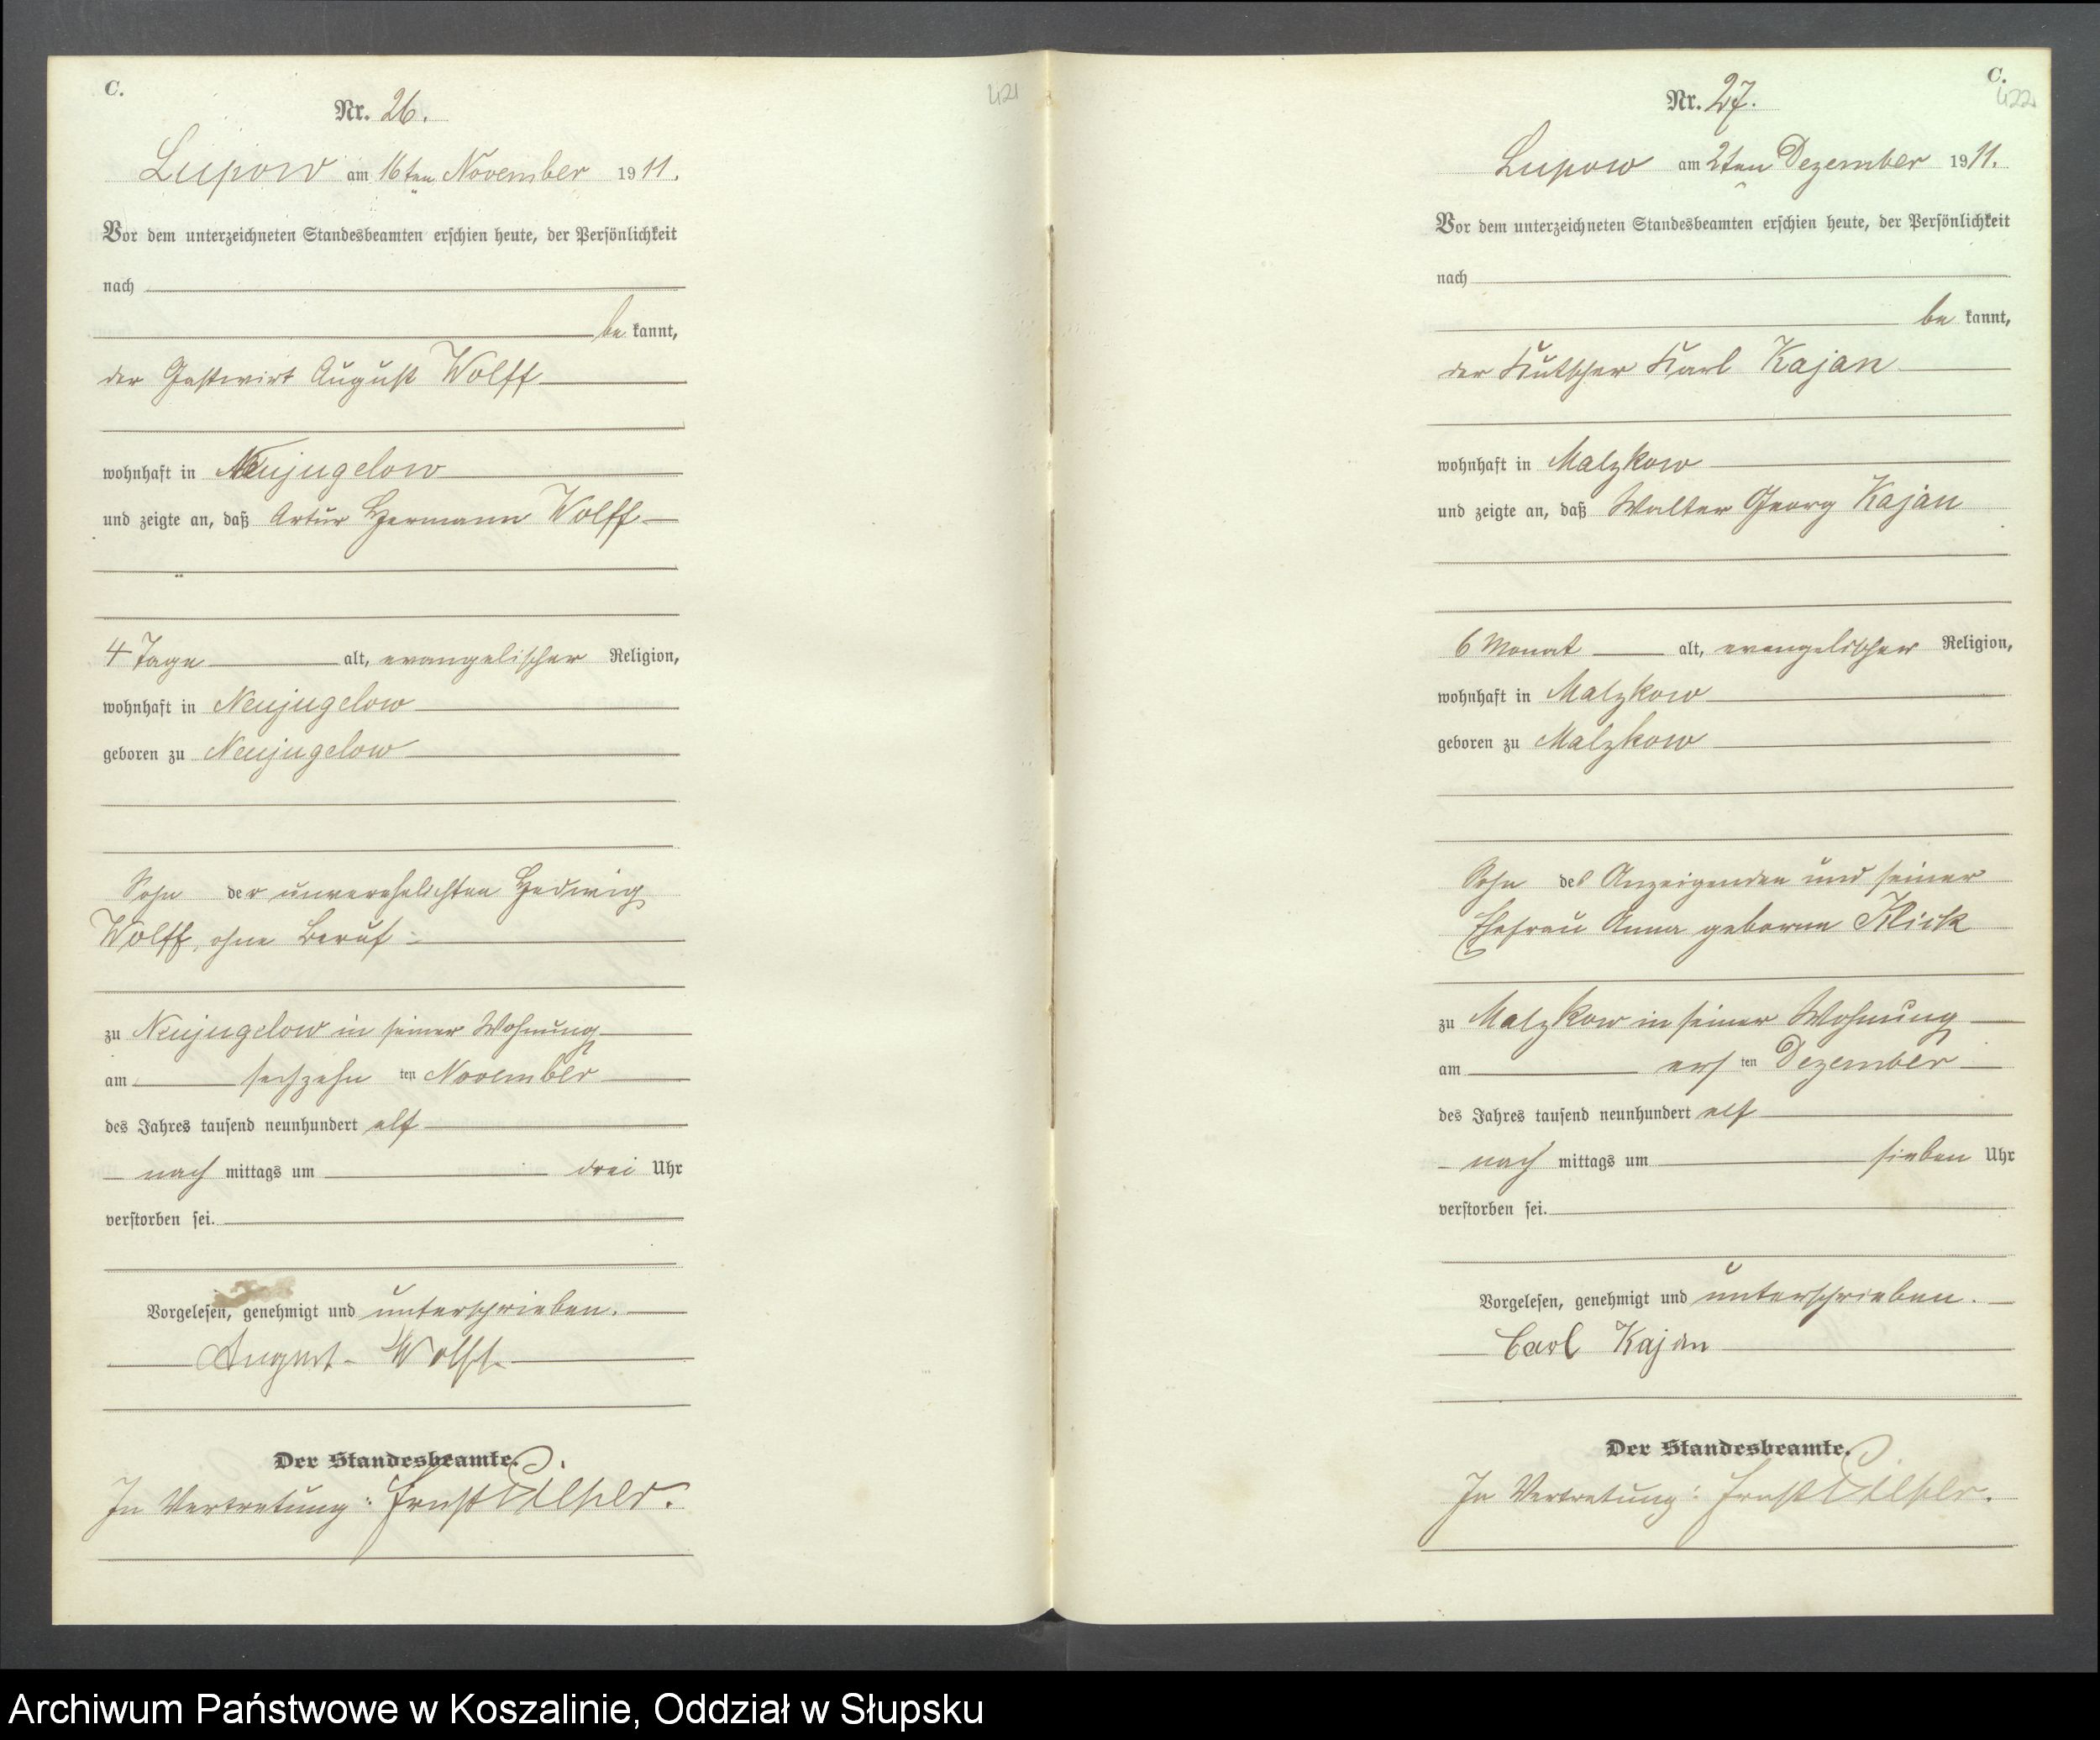 C.
421
Nr. 26.
Lupow am 16ten November 1911.
Vor dem unterzeichneten Standesbeamten erschien heute, der Persönlichkeit
nach
be kannt,
der Gastwirt August Wolff
wohnhaft in Neujugelow
und zeigte an, daß Artur Hermann Wolff
4 Tage alt, evangelischer Religion,
wohnhaft in Neujugelow
geboren zu Neujugelow
Sohn der unverehelichten Hedwig
Wolff, ohne Beruf
zu Neujugelow in seiner Wohnung
am sechzehn ten November
des Jahres tausend neunhundert elf
nach mittags um drei Uhr
verstorben sei.
Vorgelesen, genehmigt und unterschrieben.
August Wolff
Der Standesbeamte.
In Vertretung: Ernst
C.
422
Nr. 27.
Lupow am 2ten Dezember 1911.
Vor dem unterzeichneten Standesbeamten erschien heute, der Persönlichkeit
nach
be kannt,
der Kutscher Karl Kajan
wohnhaft in Malzkow
und zeigte an, daß Walter Georg Kajan
6 Monat alt, evangelischer Religion,
wohnhaft in Malzkow
geboren zu Malzkow
Sohn des Anzeigenden und seiner
Ehefrau Anna geborne Klick
zu Malzkow in seiner Wohnung
am ers ten Dezember
des Jahres tausend neunhundert elf
nach mittags um sieben Uhr
verstorben sei.
Vorgelesen, genehmigt und unterschrieben.
Carl Kajan
Der Standesbeamte.
In Vertretung: Ernst
Archiwum Państwowe w Koszalinie, Oddział w Słupsku